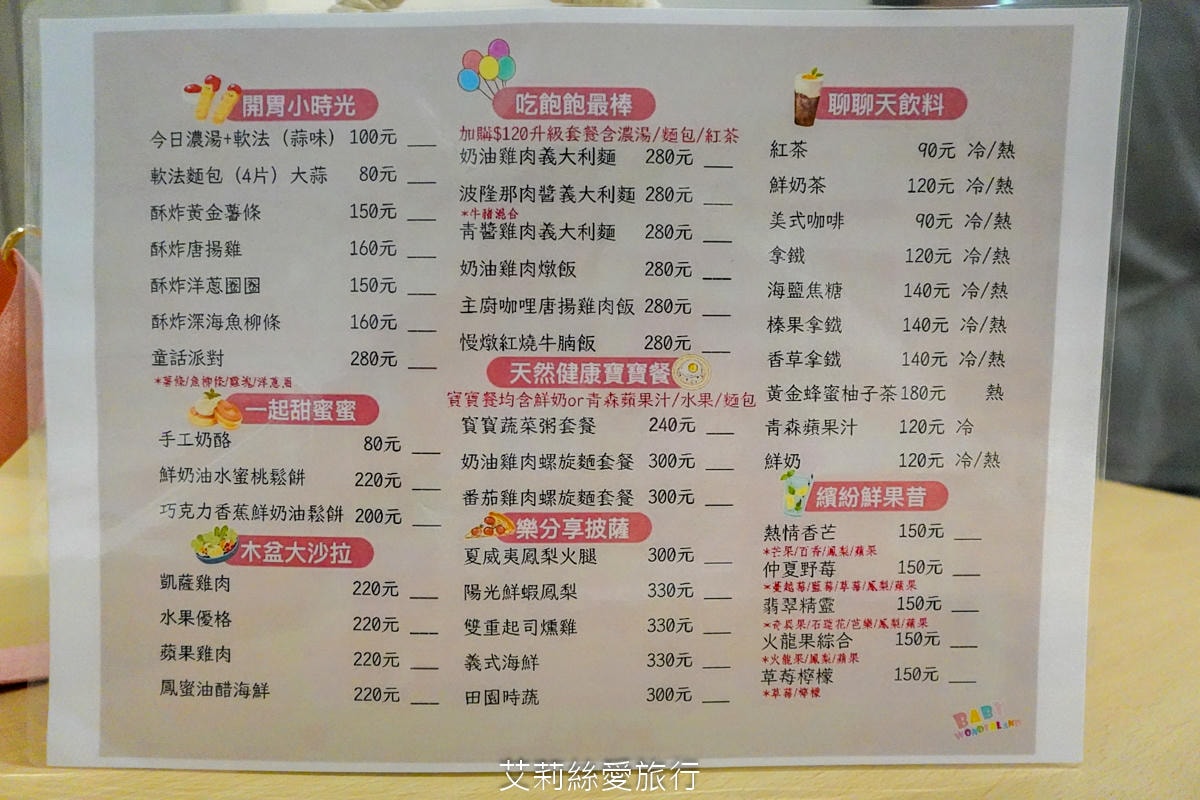 開胃小時光
今日濃湯+軟法（蒜味） 100元 ___
軟法麵包（4片）大蒜 80元 ___
酥炸黃金薯條 150元 ___
酥炸唐揚雞 160元 ___
酥炸洋蔥圈圈 150元 ___
酥炸深海魚柳條 160元 ___
童話派對 280元 ___
*薯條/魚柳條/雞塊/洋蔥圈
一起甜蜜蜜
手工奶酪 80元 ___
鮮奶油水蜜桃鬆餅 220元 ___
巧克力香蕉鮮奶油鬆餅 200元 ___
木盆大沙拉
凱薩雞肉 220元 ___
水果優格 220元 ___
蘋果雞肉 220元 ___
鳳蜜油醋海鮮 220元 ___
吃飽飽最棒
加購$120升級套餐含濃湯/麵包/紅茶
奶油雞肉義大利麵 280元 ___
波隆那肉醬義大利麵 280元 ___
*牛豬混合
青醬雞肉義大利麵 280元 ___
奶油雞肉燉飯 280元 ___
主廚咖哩唐揚雞肉飯 280元 ___
慢燉紅燒牛腩飯 280元 ___
天然健康寶寶餐
寶寶餐均含鮮奶or青森蘋果汁/水果/麵包
寶寶蔬菜粥套餐 240元 ___
奶油雞肉螺旋麵套餐 300元 ___
番茄雞肉螺旋麵套餐 300元 ___
樂分享披薩
夏威夷鳳梨火腿 300元 ___
陽光鮮蝦鳳梨 330元 ___
雙重起司燻雞 330元 ___
義式海鮮 330元 ___
田園時蔬 300元 ___
聊聊天飲料
紅茶 90元 冷/熱
鮮奶茶 120元 冷/熱
美式咖啡 90元 冷/熱
拿鐵 120元 冷/熱
海鹽焦糖 140元 冷/熱
榛果拿鐵 140元 冷/熱
香草拿鐵 140元 冷/熱
黃金蜂蜜柚子茶 180元 熱
青森蘋果汁 120元 冷
鮮奶 120元 冷/熱
繽紛鮮果昔
熱情香芒 150元 ___
*芒果/百香/鳳梨/蘋果
仲夏野莓 150元 ___
*蔓越莓/藍莓/草莓/鳳梨/蘋果
翡翠精靈 150元 ___
*奇異果/石蓮花/芭樂/鳳梨/蘋果
火龍果綜合 150元 ___
*火龍果/鳳梨/蘋果
草莓檸檬 150元 ___
*草莓/檸檬
BABY
WONDERLAND
艾莉絲愛旅行